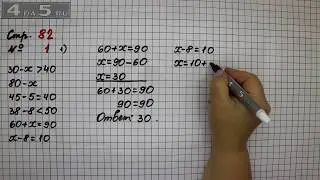 4PA5.RU
Стр. 82
№ 1 1)
30-х>40
80-х
45-5=40
38-8<50
60+х=90
х-8=10
60+х=90
х=90-60
х=30
60+30=90
90=90
Ответ: 30.
х-8=10
х=10+